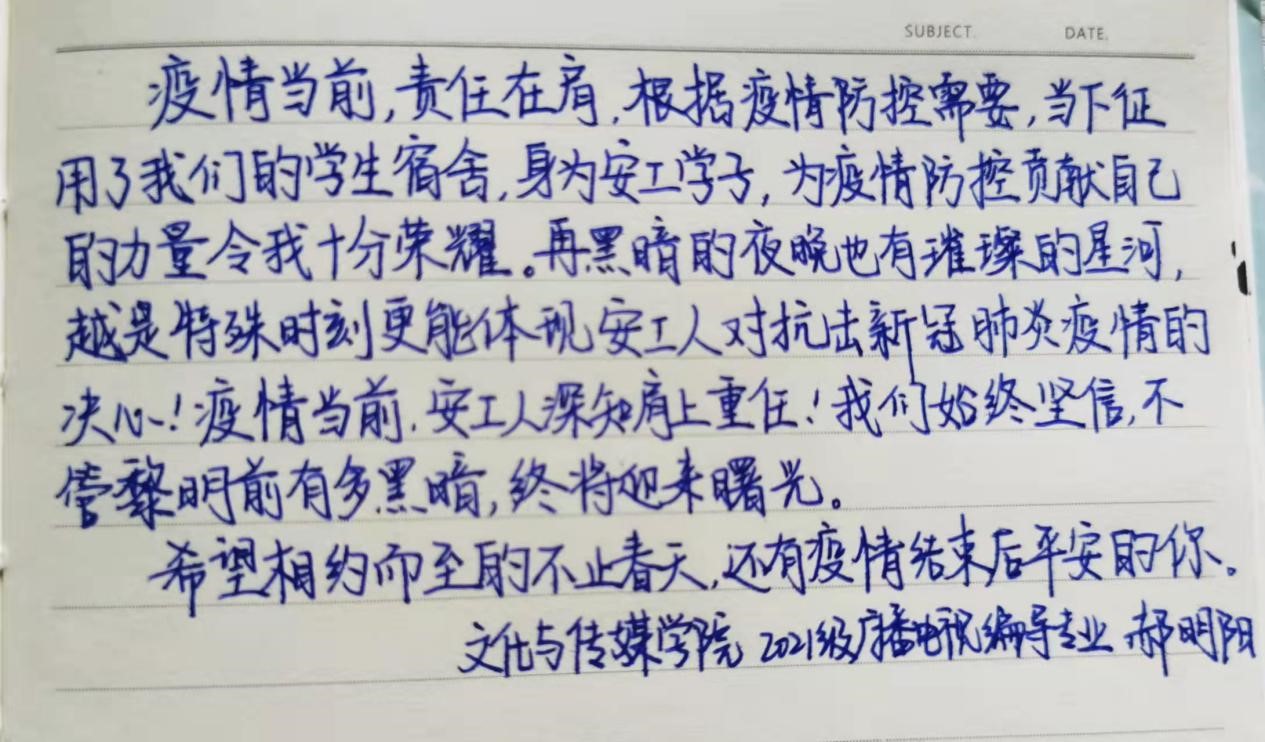 SUBJECT. DATE.
疫情当前,责任在肩,根据疫情防控需要,当下征
用了我们的学生宿舍,身为安工学子,为疫情防控贡献自己
的力量令我十分荣耀。再黑暗的夜晚也有璀璨的星河,
越是特殊时刻更能体现安工人对抗击新冠肺炎疫情的
决心!疫情当前,安工人深知肩上重任!我们始终坚信,不
管黎明前有多黑暗,终将迎来曙光。
希望相约而至的不止春天,还有疫情结束后平安的你。
文化与传媒学院 2021级广播电视编导专业 郝明阳